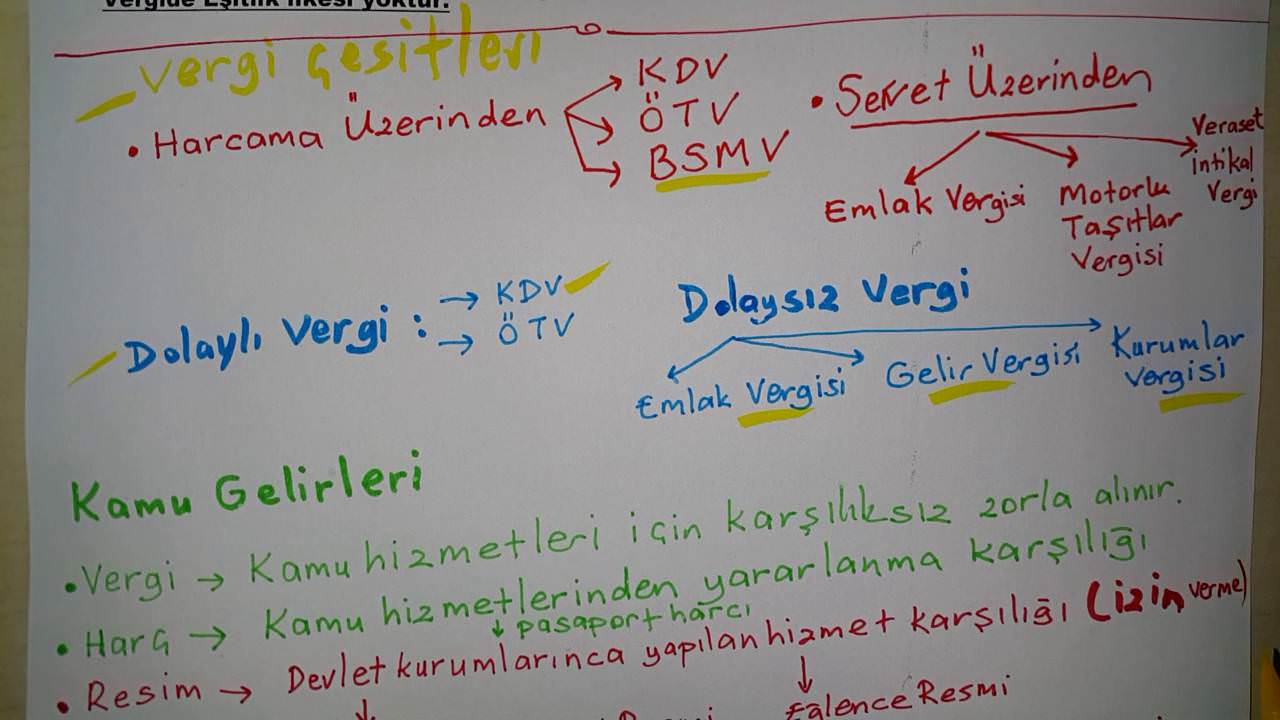 Vergide Eşitlik ilkesi yoktur.
vergi çeşitleri
• Harcama Üzerinden → KDV
→ ÖTV
→ BSMV
• Servet Üzerinden
Emlak Vergisi
Motorlu
Taşıtlar
Vergisi
Veraset
intikal
Vergi
Dolaylı Vergi : → KDV
→ ÖTV
Dolaysız Vergi
Emlak Vergisi
Gelir Vergisi
Kurumlar
Vergisi
Kamu Gelirleri
• Vergi → Kamu hizmetleri için karşılıksız zorla alınır.
• Harç → Kamu hizmetlerinden yararlanma karşılığı
↓ pasaport harcı
• Resim → Devlet kurumlarınca yapılan hizmet karşılığı (izin verme)
↓
↓
Eğlence Resmi